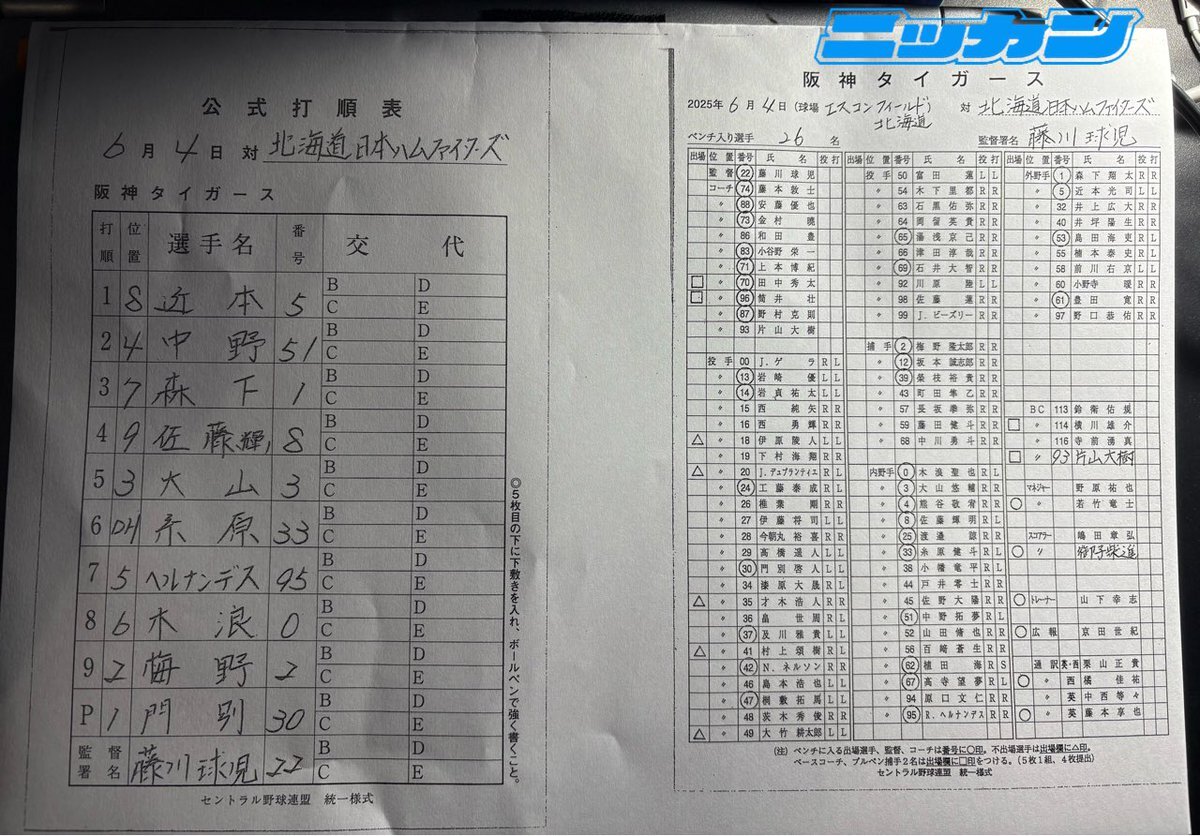 ニッカン
公式打順表
6月4日対 北海道日本ハムファイターズ
阪神タイガース
打順 位置 選手名 番号 交代
1 8 近本 5 B D C E
2 4 中野 51 B D C E
3 7 森下 1 B D C E
4 9 佐藤輝 8 B D C E
5 3 大山 3 B D C E
6 DH 糸原 33 B D C E
7 5 ヘルナンデス 95 B D C E
8 6 木浪 0 B D C E
9 2 梅野 2 B D C E
P 1 門別 30 B D C E
監督署名 藤川球児 22 B D C E
セントラル野球連盟 統一様式
◎5枚目の下に下敷きを入れ、ボールペンで強く書くこと。
阪神タイガース
2025年6月4日(球場 エスコンフィールド北海道) 対 北海道日本ハムファイターズ
ベンチ入り選手 26名 監督署名 藤川球児
出場 位置 番号 氏名 投 打
監督 22 藤川球児
コーチ 74 藤本敦士
〃 88 安藤優也
〃 73 金村暁
〃 86 和田豊
〃 83 小谷野栄一
〃 71 上本博紀
□ 〃 70 田中秀太
□ 〃 96 筒井壮
〃 87 野村克則
〃 93 片山大樹
投手 00 J.ゲラ R L
〃 13 岩崎優 L L
〃 14 岩貞祐太 L L
〃 15 西純矢 R R
〃 16 西勇輝 R R
△ 〃 18 伊原陵人 L L
〃 19 下村海翔 R R
△ 〃 20 J.デュプランティエ R L
〃 24 工藤泰成 R L
〃 26 椎葉剛 R R
〃 27 伊藤将司 L L
〃 28 今朝丸裕喜 R R
〃 29 髙橋遥人 L L
〃 30 門別啓人 L L
〃 34 漆原大晟 R L
△ 〃 35 才木浩人 R R
〃 36 畠世周 R L
〃 37 及川雅貴 L L
△ 〃 41 村上頌樹 R L
〃 42 N.ネルソン R R
〃 46 島本浩也 L L
〃 47 桐敷拓馬 L L
〃 48 茨木秀俊 R R
△ 〃 49 大竹耕太郎 L L
出場 位置 番号 氏名 投 打
投手 50 富田蓮 L L
〃 54 木下里都 R R
〃 63 石黒佑弥 R R
〃 64 岡留英貴 R R
〃 65 湯浅京己 R R
〃 66 津田淳哉 R R
〃 69 石井大智 R R
〃 92 川原陸 L L
〃 98 佐藤蓮 R R
〃 99 J.ビーズリー R R
捕手 2 梅野隆太郎 R R
〃 12 坂本誠志郎 R R
〃 39 榮枝裕貴 R R
〃 43 町田隼乙 R R
〃 57 長坂拳弥 R R
〃 59 藤田健斗 R R
〃 68 中川勇斗 R R
内野手 0 木浪聖也 R L
〃 3 大山悠輔 R R
〃 4 熊谷敬宥 R R
〃 8 佐藤輝明 R L
〃 25 渡邉諒 R R
〃 33 糸原健斗 R L
〃 38 小幡竜平 R L
〃 44 戸井零士 R R
〃 45 佐野大陽 R R
〃 51 中野拓夢 R L
〃 52 山田脩也 R R
〃 56 百﨑蒼生 R R
〃 62 植田海 R S
〃 67 高寺望夢 R L
〃 94 原口文仁 R R
〃 95 R.ヘルナンデス R R
出場 位置 番号 氏名 投 打
外野手 1 森下翔太 R R
〃 5 近本光司 L L
〃 32 井上広大 R R
〃 40 井坪陽生 R R
〃 53 島田海吏 R L
〃 55 楠本泰史 R L
〃 58 前川右京 L L
〃 60 小野寺暖 R R
〃 61 豊田寛 R R
〃 97 野口恭佑 R R
BC 113 鈴衛佑規
□ 〃 114 横川雄介
〃 116 寺前湧真
□ 〃 93 片山大樹
マネジャー 野原祐也
○ 〃 若竹竜士
スコアラー 嶋田章弘
○ 〃 御子柴進
○ トレーナー 山下幸志
○ 広報 京田世紀
通訳 英・西 栗山正貴
○ 〃 西 橘佳祐
〃 英 中西等々
○ 〃 英 藤本享也
(注) ベンチに入る出場選手、監督、コーチは番号に○印。不出場選手は出場欄に△印。
ベースコーチ、ブルペン捕手2名は出場欄に□印をつける。(5枚1組、4枚提出)
セントラル野球連盟 統一様式